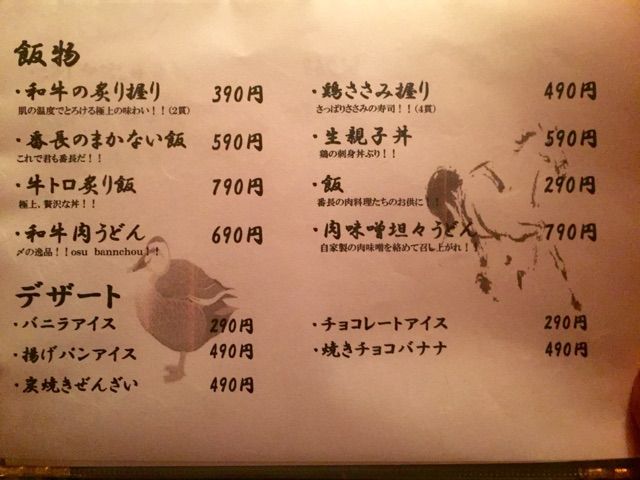 飯物
・和牛の炙り握り 390円
肌の温度でとろける極上の味わい！！(2貫)
・番長のまかない飯 590円
これで君も番長だ！！
・牛トロ炙り飯 790円
極上、贅沢な丼！！
・和牛肉うどん 690円
〆の逸品！！osu bannchou！！
・鶏ささみ握り 490円
さっぱりささみの寿司！！(4貫)
・生親子丼 590円
鶏の刺身丼ぶり！！
・飯 290円
番長の肉料理たちのお供に！！
・肉味噌坦々うどん 790円
自家製の肉味噌を絡めて召し上がれ！！
デザート
・バニラアイス 290円
・揚げパンアイス 490円
・炭焼きぜんざい 490円
・チョコレートアイス 290円
・焼きチョコバナナ 490円